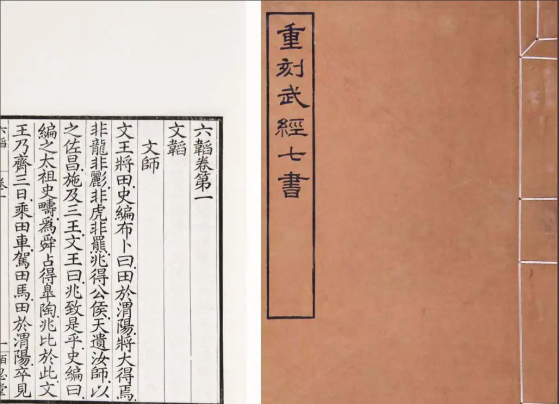 重刻武經七書
六韜卷第一
文韜
文師
文王將田史編布卜曰田於渭陽將大得焉
非龍非彲非虎非羆兆得公侯天遺汝師以
之佐昌施及三王文王曰兆致是乎史編曰
編之太祖史疇爲舜占得皐陶兆比於此文
王乃齊三日乘田車駕田馬田於渭陽卒見
六韜 卷一
一 百忍堂